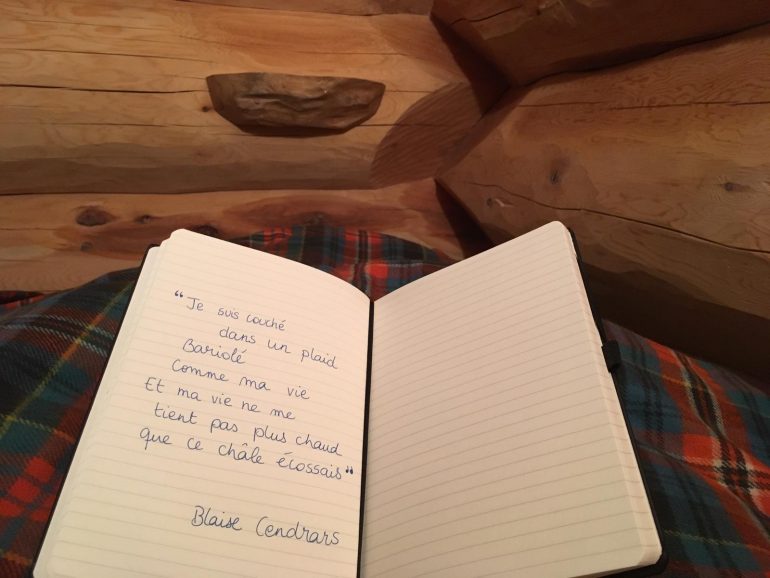 “Je suis couché
dans un plaid
Bariolé
Comme ma vie
Et ma vie ne me
tient pas plus chaud
que ce châle écossais“
Blaise Cendrars